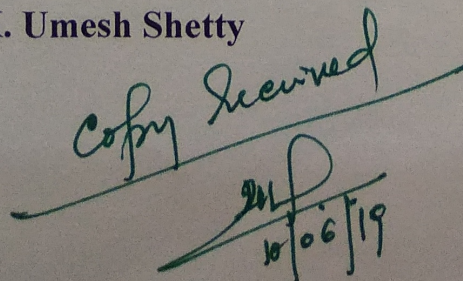 . Umesh Shetty
Copy Received
10/06/19